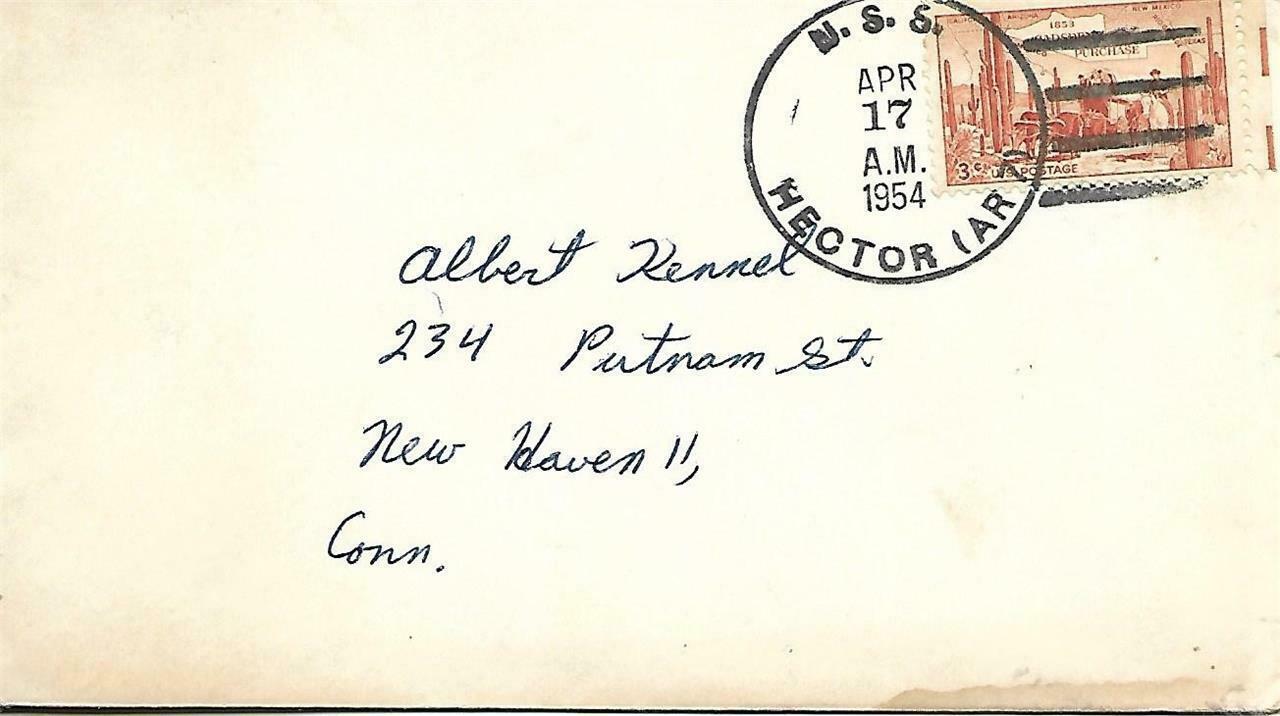 U.S.S.
APR
17
A.M.
1954
HECTOR (AR
CALIFORNIA ARIZONA NEW MEXICO
TEXAS
1853
GADSDEN
PURCHASE
3¢ U.S. POSTAGE
Albert Kennel
234 Putnam St.
New Haven 11,
Conn.